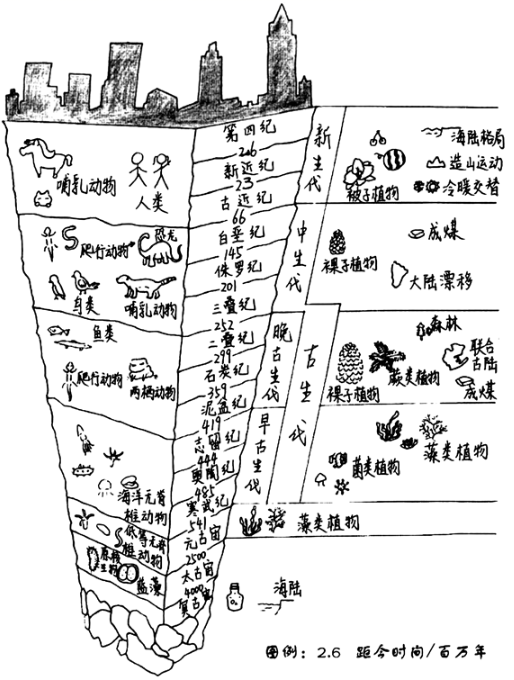 第四纪
2.6
新近纪
23
古近纪
66
白垩纪
145
侏罗纪
201
三叠纪
252
三叠纪
299
石炭纪
359
泥盆纪
419
志留纪
444
奥陶纪
485
寒武纪
541
元古宙
2500
太古宙
4000
冥古宙
新生代
中生代
晚古生代
早古生代
古生代
哺乳动物
人类
爬行动物
恐龙
鸟类
哺乳动物
鱼类
爬行动物
两栖动物
海洋无脊
椎动物
低等无脊
椎动物
原核
生物
蓝藻
被子植物
海陆格局
造山运动
冷暖交替
裸子植物
成煤
大陆漂移
森林
裸子植物
蕨类植物
联合
古陆
成煤
藻类植物
菌类植物
藻类植物
O₂
海陆
图例：2.6 距今时间/百万年